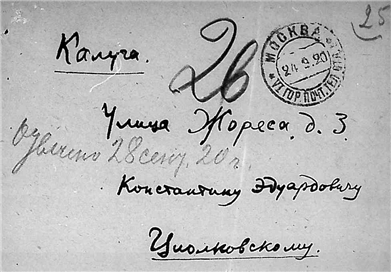 25
Калуга.
26
МОСКВА
24 9 20
VI ГОР. ПОЧТ. ТЕЛ.
Улица Жореса, д. 3
28 сент. 20 г.
Константину Эдуардовичу
Циолковскому.